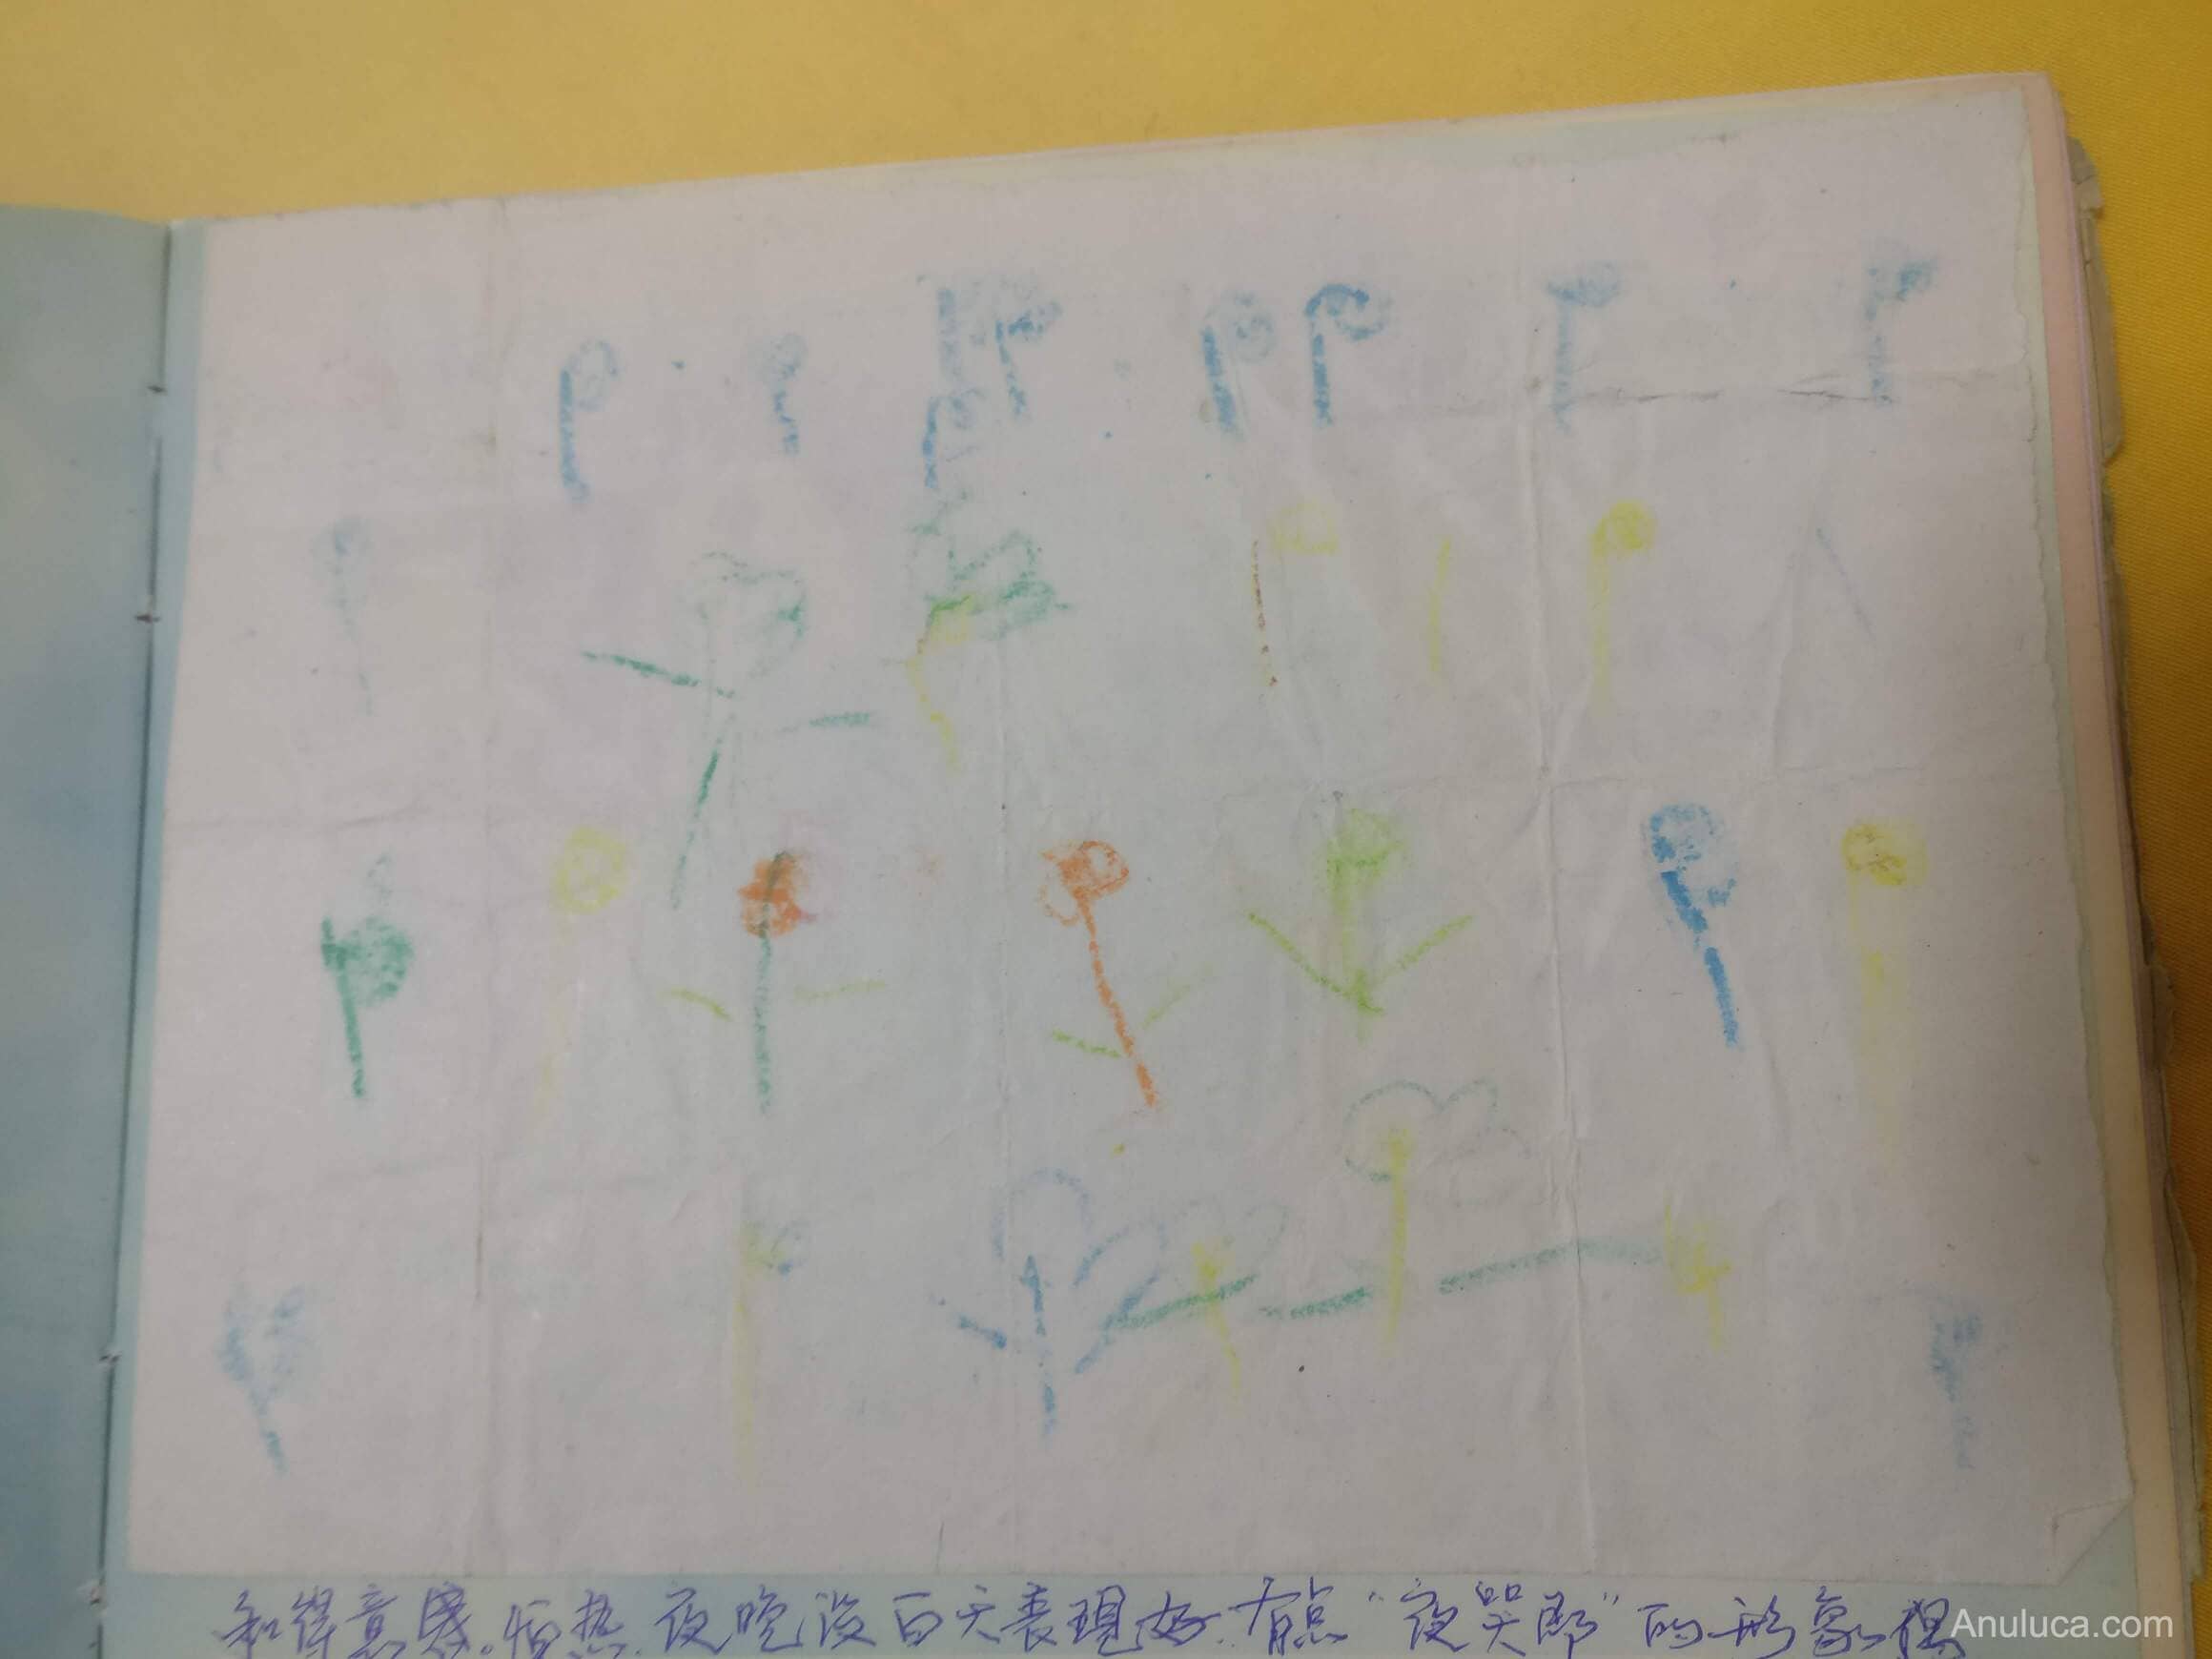 和得意感.怕热.夜晚没白天表现好.有点"夜哭郎"的形象.很
Anuluca.com